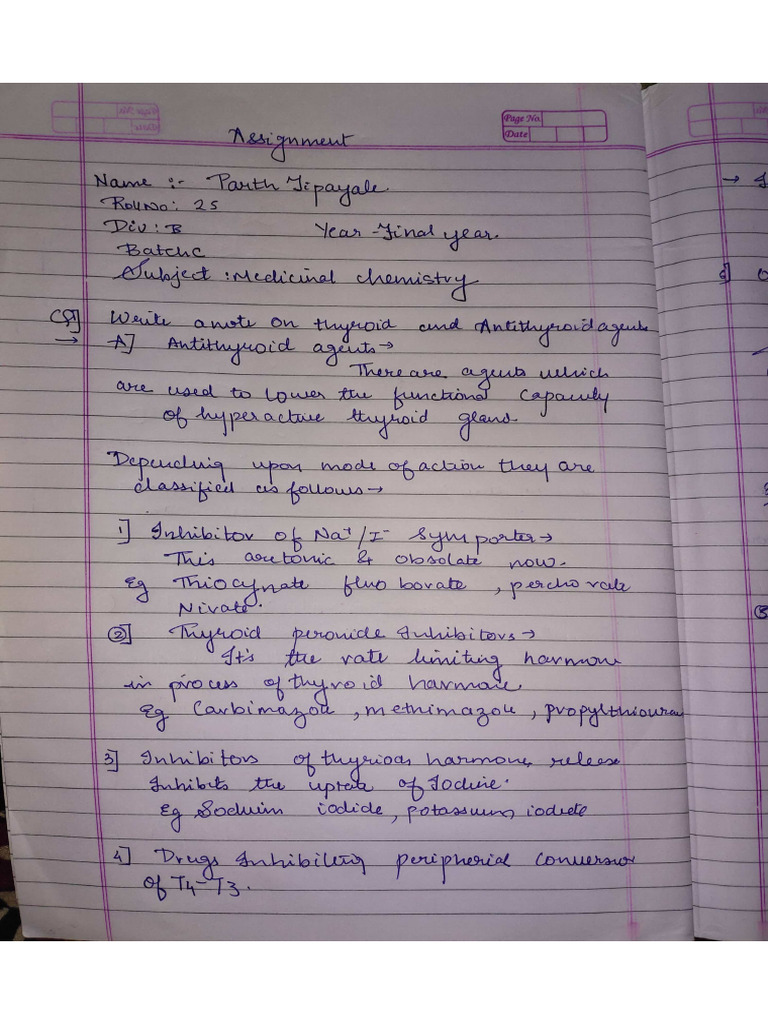 Page No.
Date
Assignment
Name :- Parth Tipayale
Roll No: 25
Div: B Year - Final year.
Batch C
Subject : Medicinal chemistry
Q1] Write a note on thyroid and Antithyroid agents
→ A] Antithyroid agents →
There are agents which
are used to lower the functional capacity
of hyperactive thyroid gland.
Depending upon mode of action they are
classified as follows →
1] Inhibitor of Na+/I- Symporter →
This are tonic & obsolate now.
Eg Thiocynate fluo borate, perchorate
Nivate.
2] Thyroid peroxide Inhibitors →
It's the rate limiting harmone
in process of thyroid harmone
Eg Carbimazole, methimazole, propylthiouracil
3] Inhibitors of thyriod harmones release
Inhibits the uptate of Iodine.
Eg Soduim iodide, potassium iodide
4] Drugs Inhibiting peripherial conversion
of T4-T3.